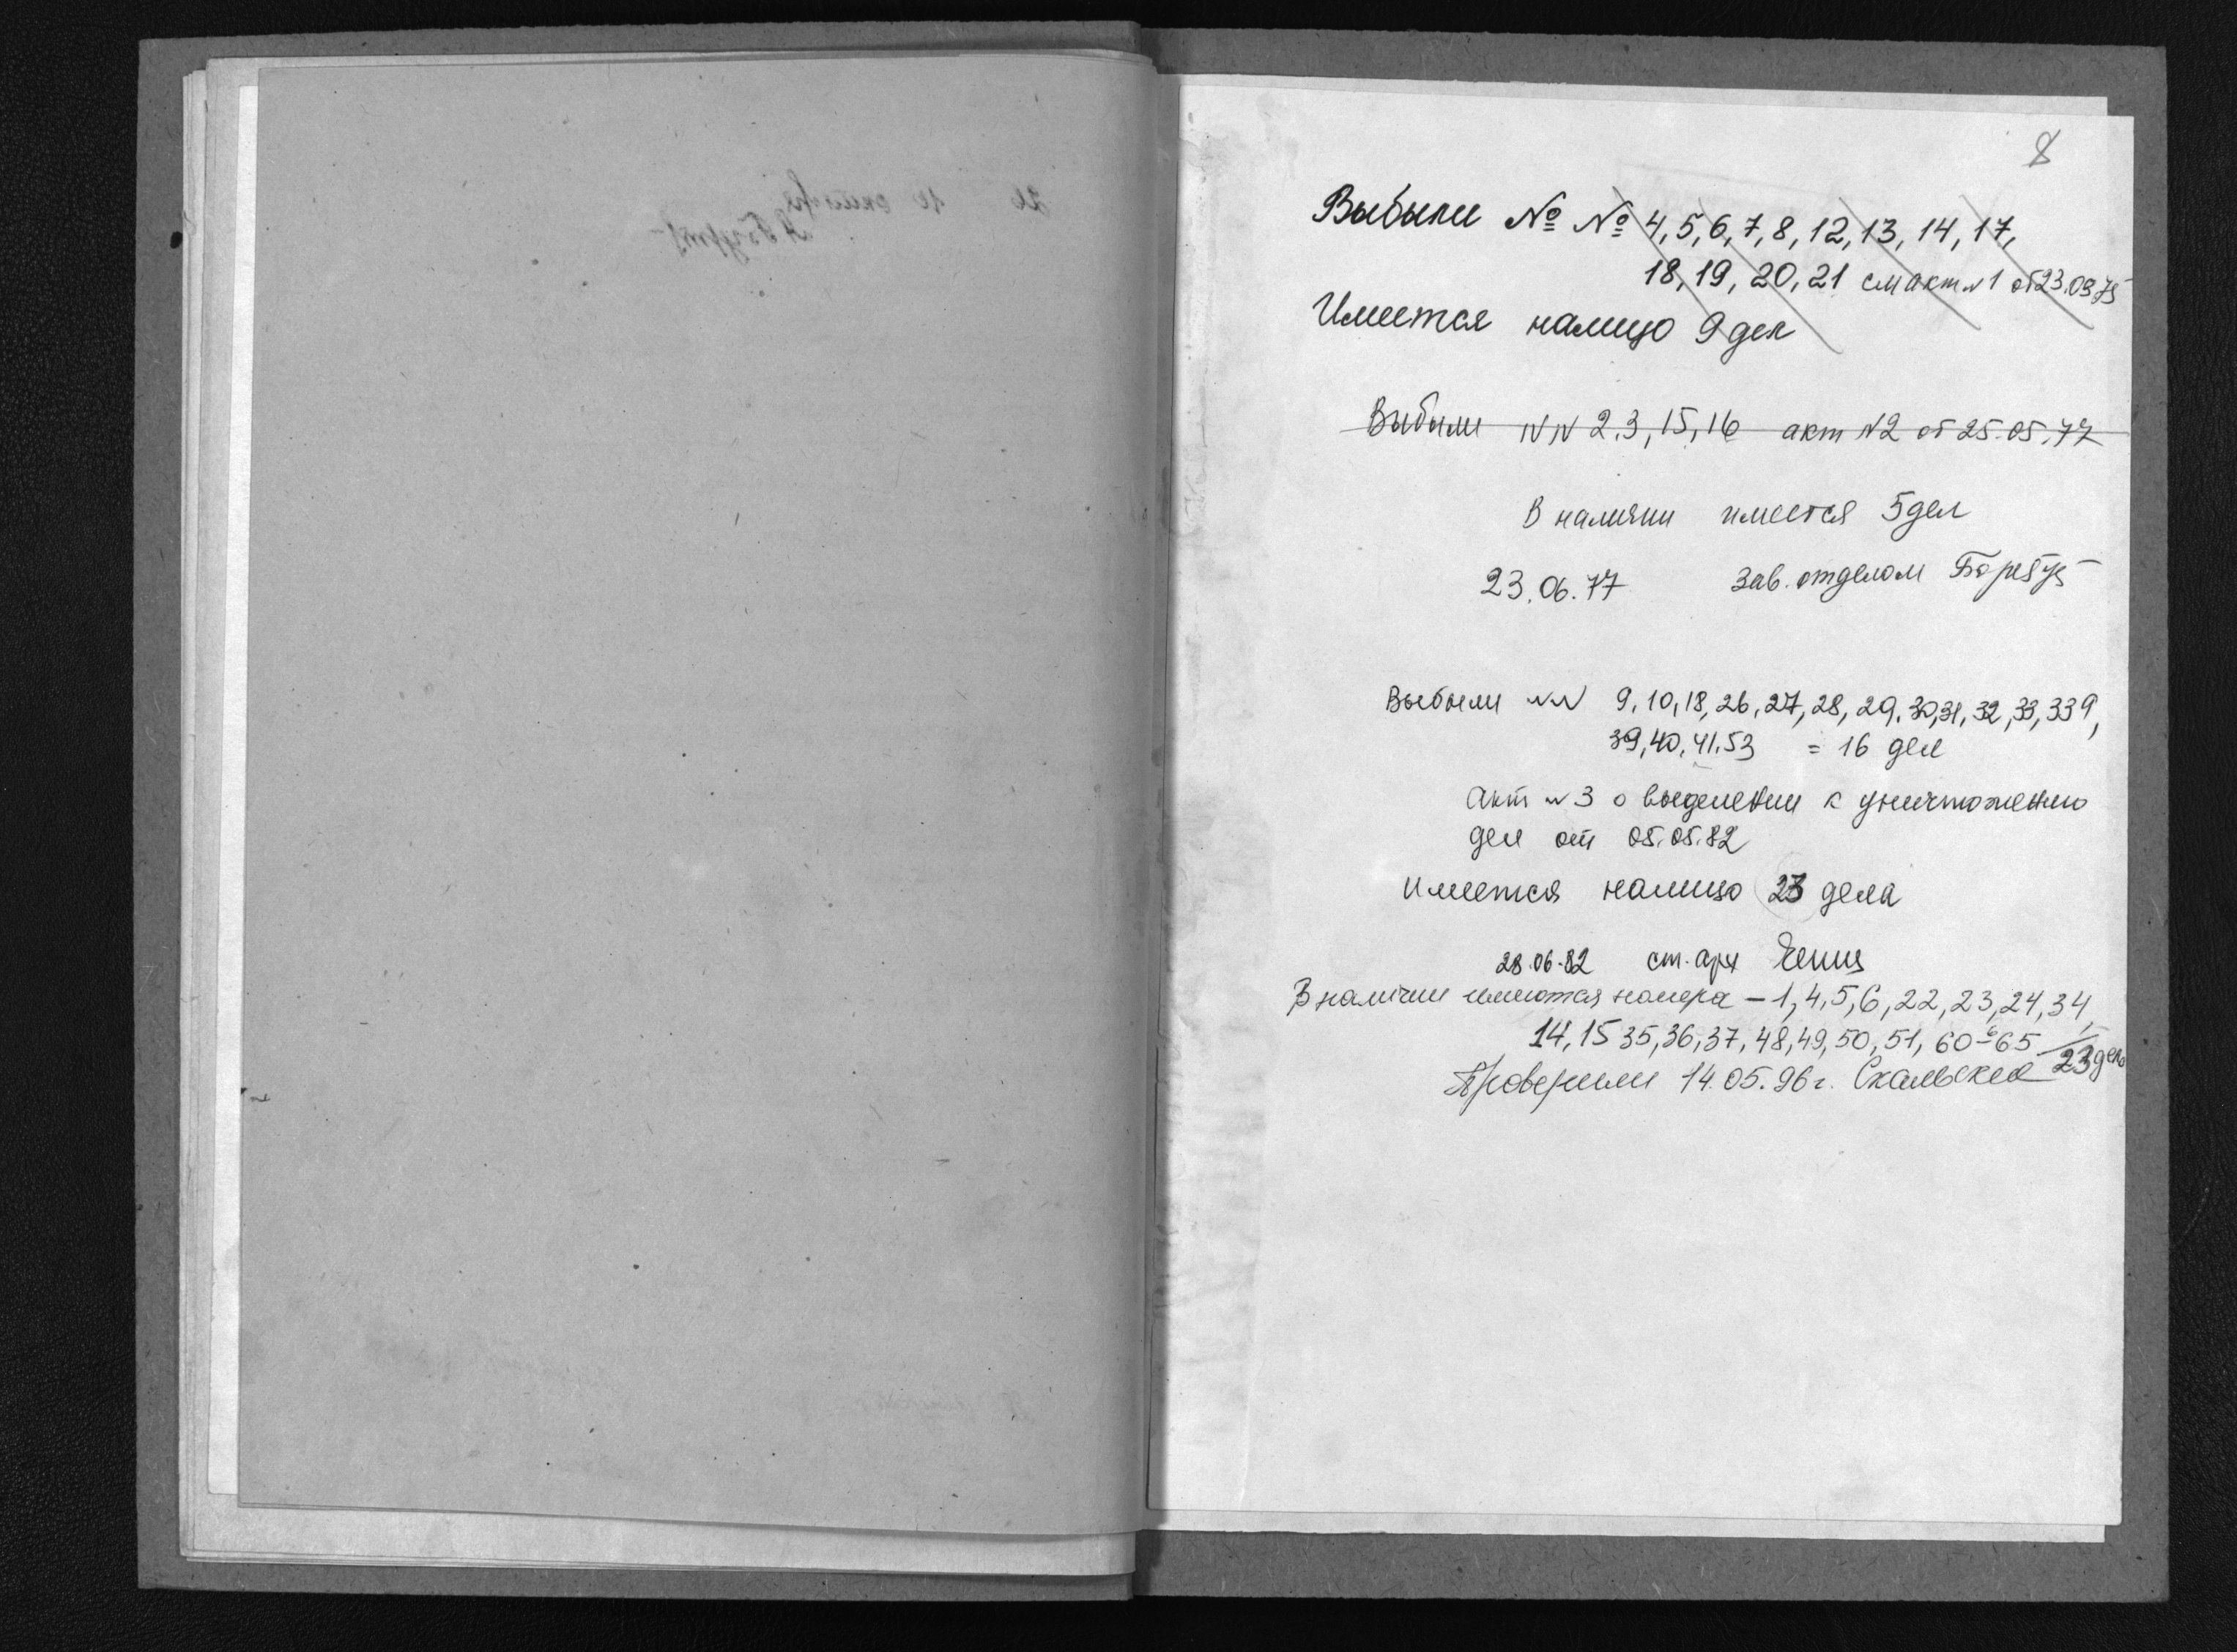 8
Выбыли № № 4, 5, 6, 7, 8, 12, 13, 14, 17,
18, 19, 20, 21 см акт № 1 от 23.09.75
Имеется налицо 9 дел
Выбыли NN 2, 3, 15, 16 акт N2 от 25.05.77
В наличии имеется 5 дел
23.06.77 Зав. отделом
Выбыли NN 9, 10, 18, 26, 27, 28, 29, 30, 31, 32, 33, 339,
39, 40, 41, 53 = 16 дел
Акт N 3 о выделении к уничтожению
дел от 05.05.82
Имеется налицо 23 дела
28.06.82 ст. арх
В наличии имеются номера – 1, 4, 5, 6, 22, 23, 24, 34,
14, 15 35, 36, 37, 48, 49, 50, 51, 60-65
23 дела
Проверили 14.05.96 г. Скальская